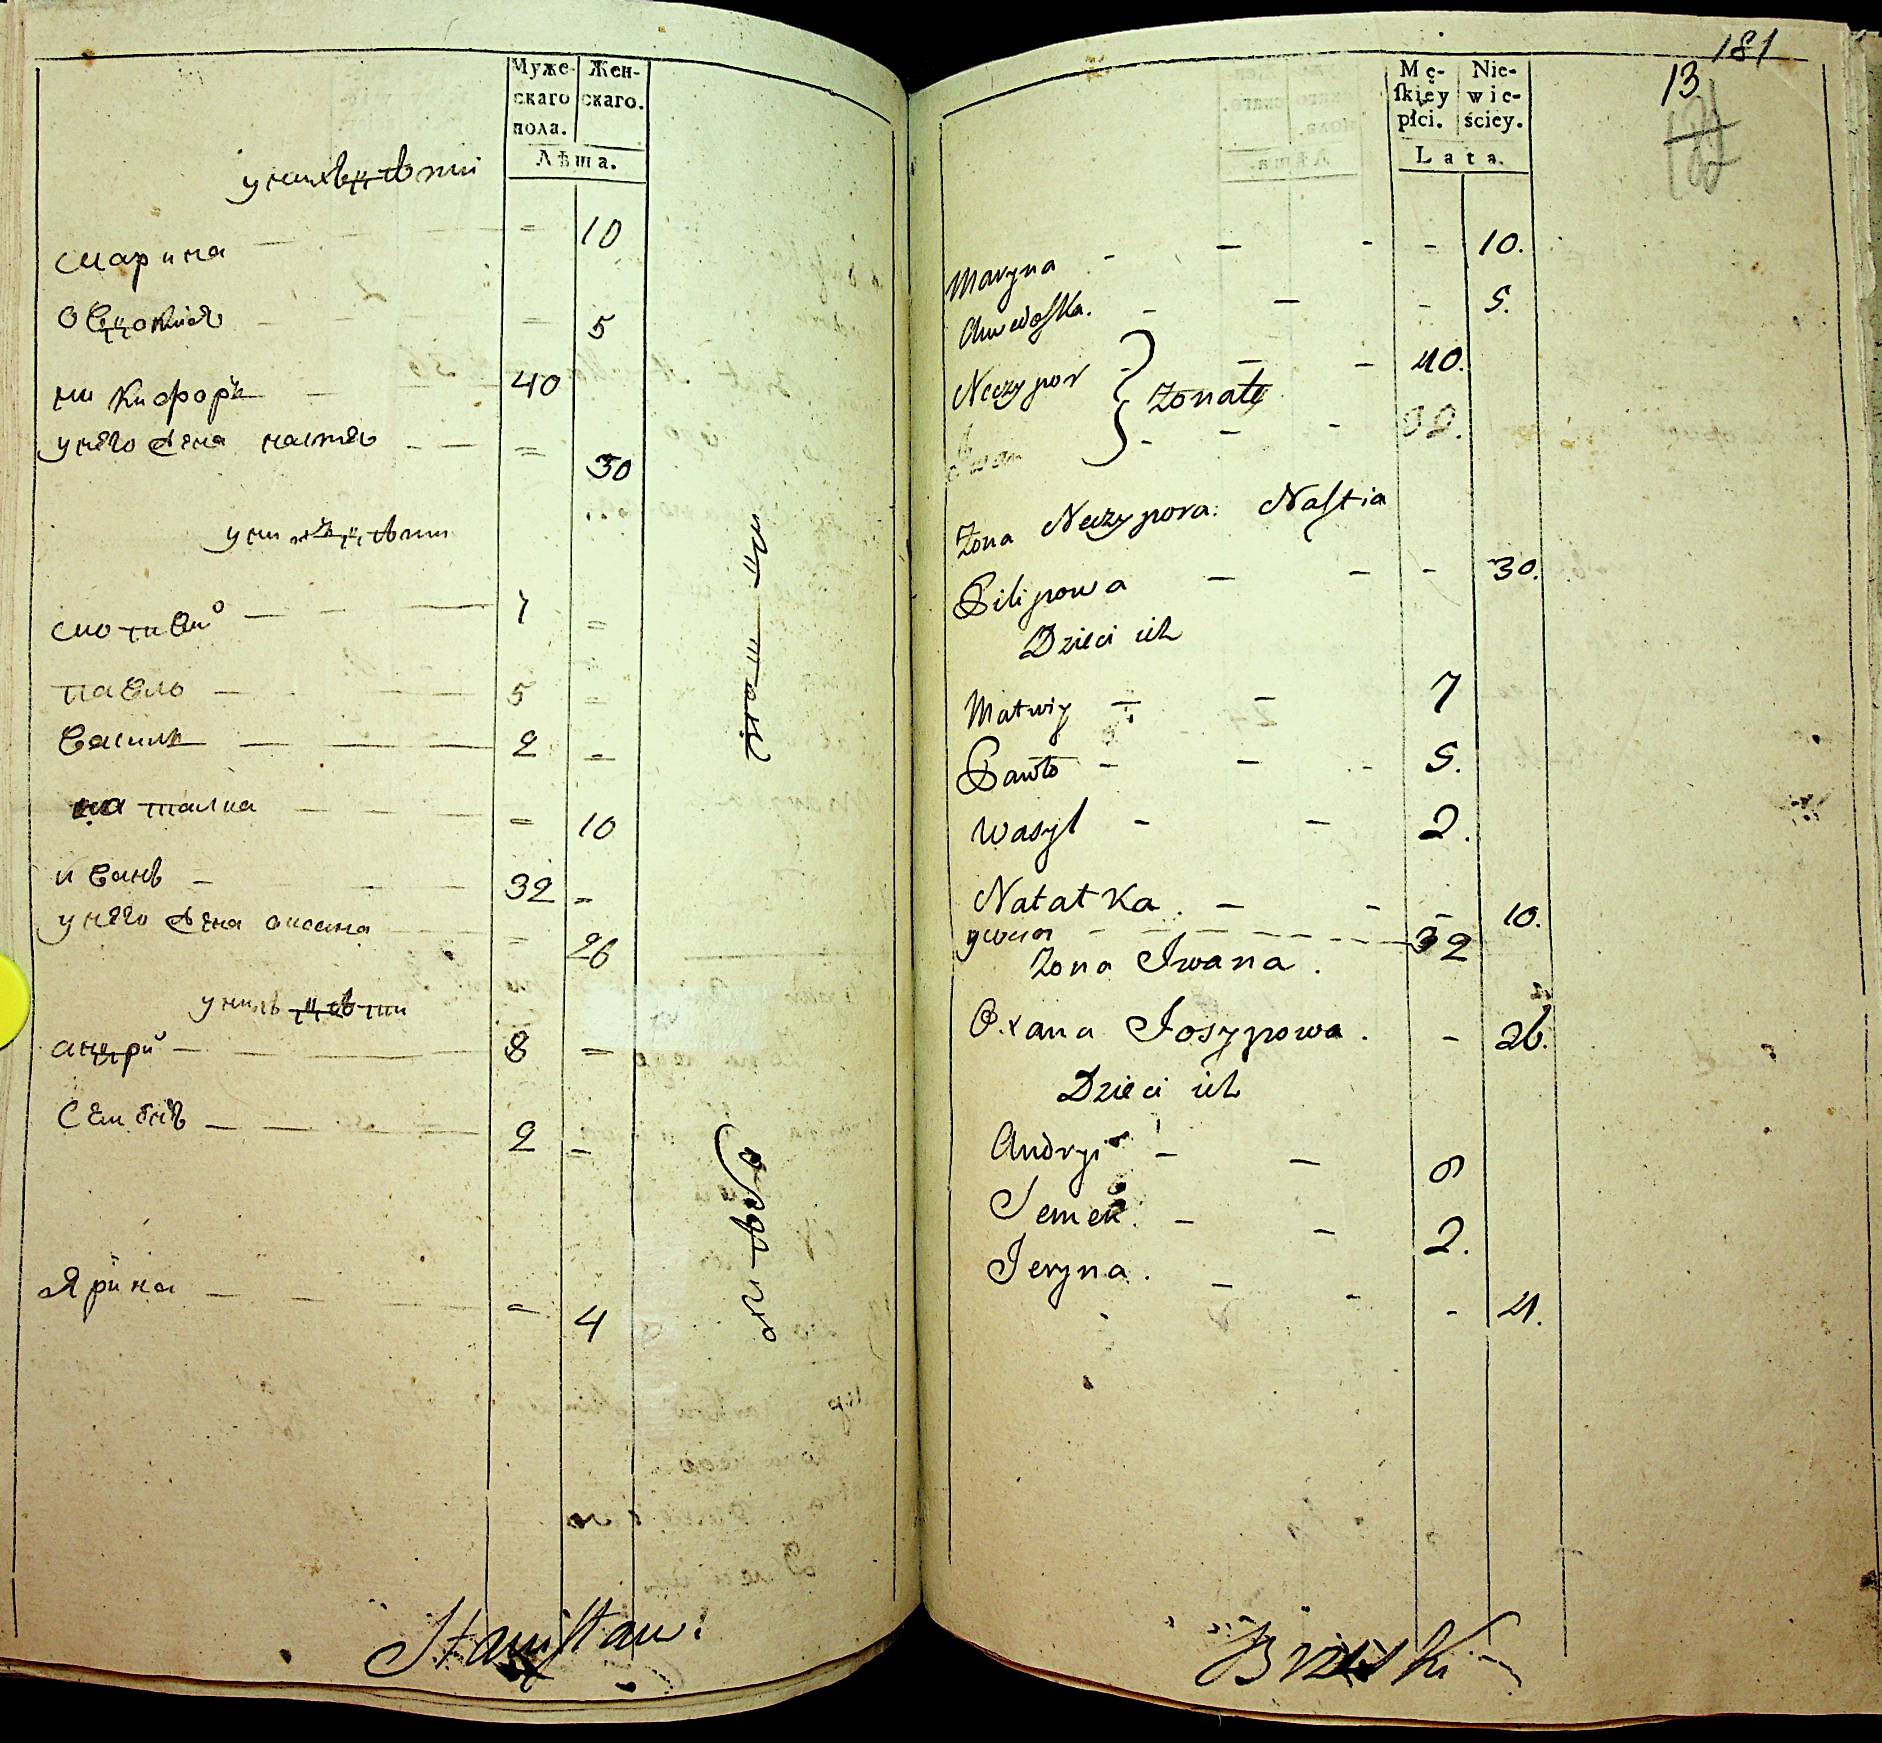 Муже-
скаго
пола.
Жен-
скаго.
Лѣта.
у нихъ дѣти
марина — — — = 10
овдокия — — = 5
никифоръ — 40
у него жена настя — — = 30
у нихъ дѣти
мотвий — — 7 =
павло — — 5 =
василь — — — 2 =
наталка — — — = 10
иванъ — — — 32 =
у него жена оксана — = 26
у нихъ дѣти
андрий — — — 8 =
семенъ — — — 2 =
Ярина — — — = 4
Stanisław
181
13
Mę-
skiey
płci.
Nie-
wie-
ściey.
Lata.
Maryna - - - - 10.
Auwdoska. - - - 5.
Neczypor - - - 40.
żonate
Iwan - - - 32.
Żona Neczypora. Nastia
Pilipowa - - - 30.
Dzieci ich
Matwiy - - 7
Pawło - - - 5.
Wasyl - - 2.
Natałka. - - - 10.
ywan - - - - - - - 32
Żona Iwana.
Oxana Josypowa. - 26.
Dzieci ich
Andryi - - 8
Semen. - - 2.
Jeryna. - - - 4.
Brzeski